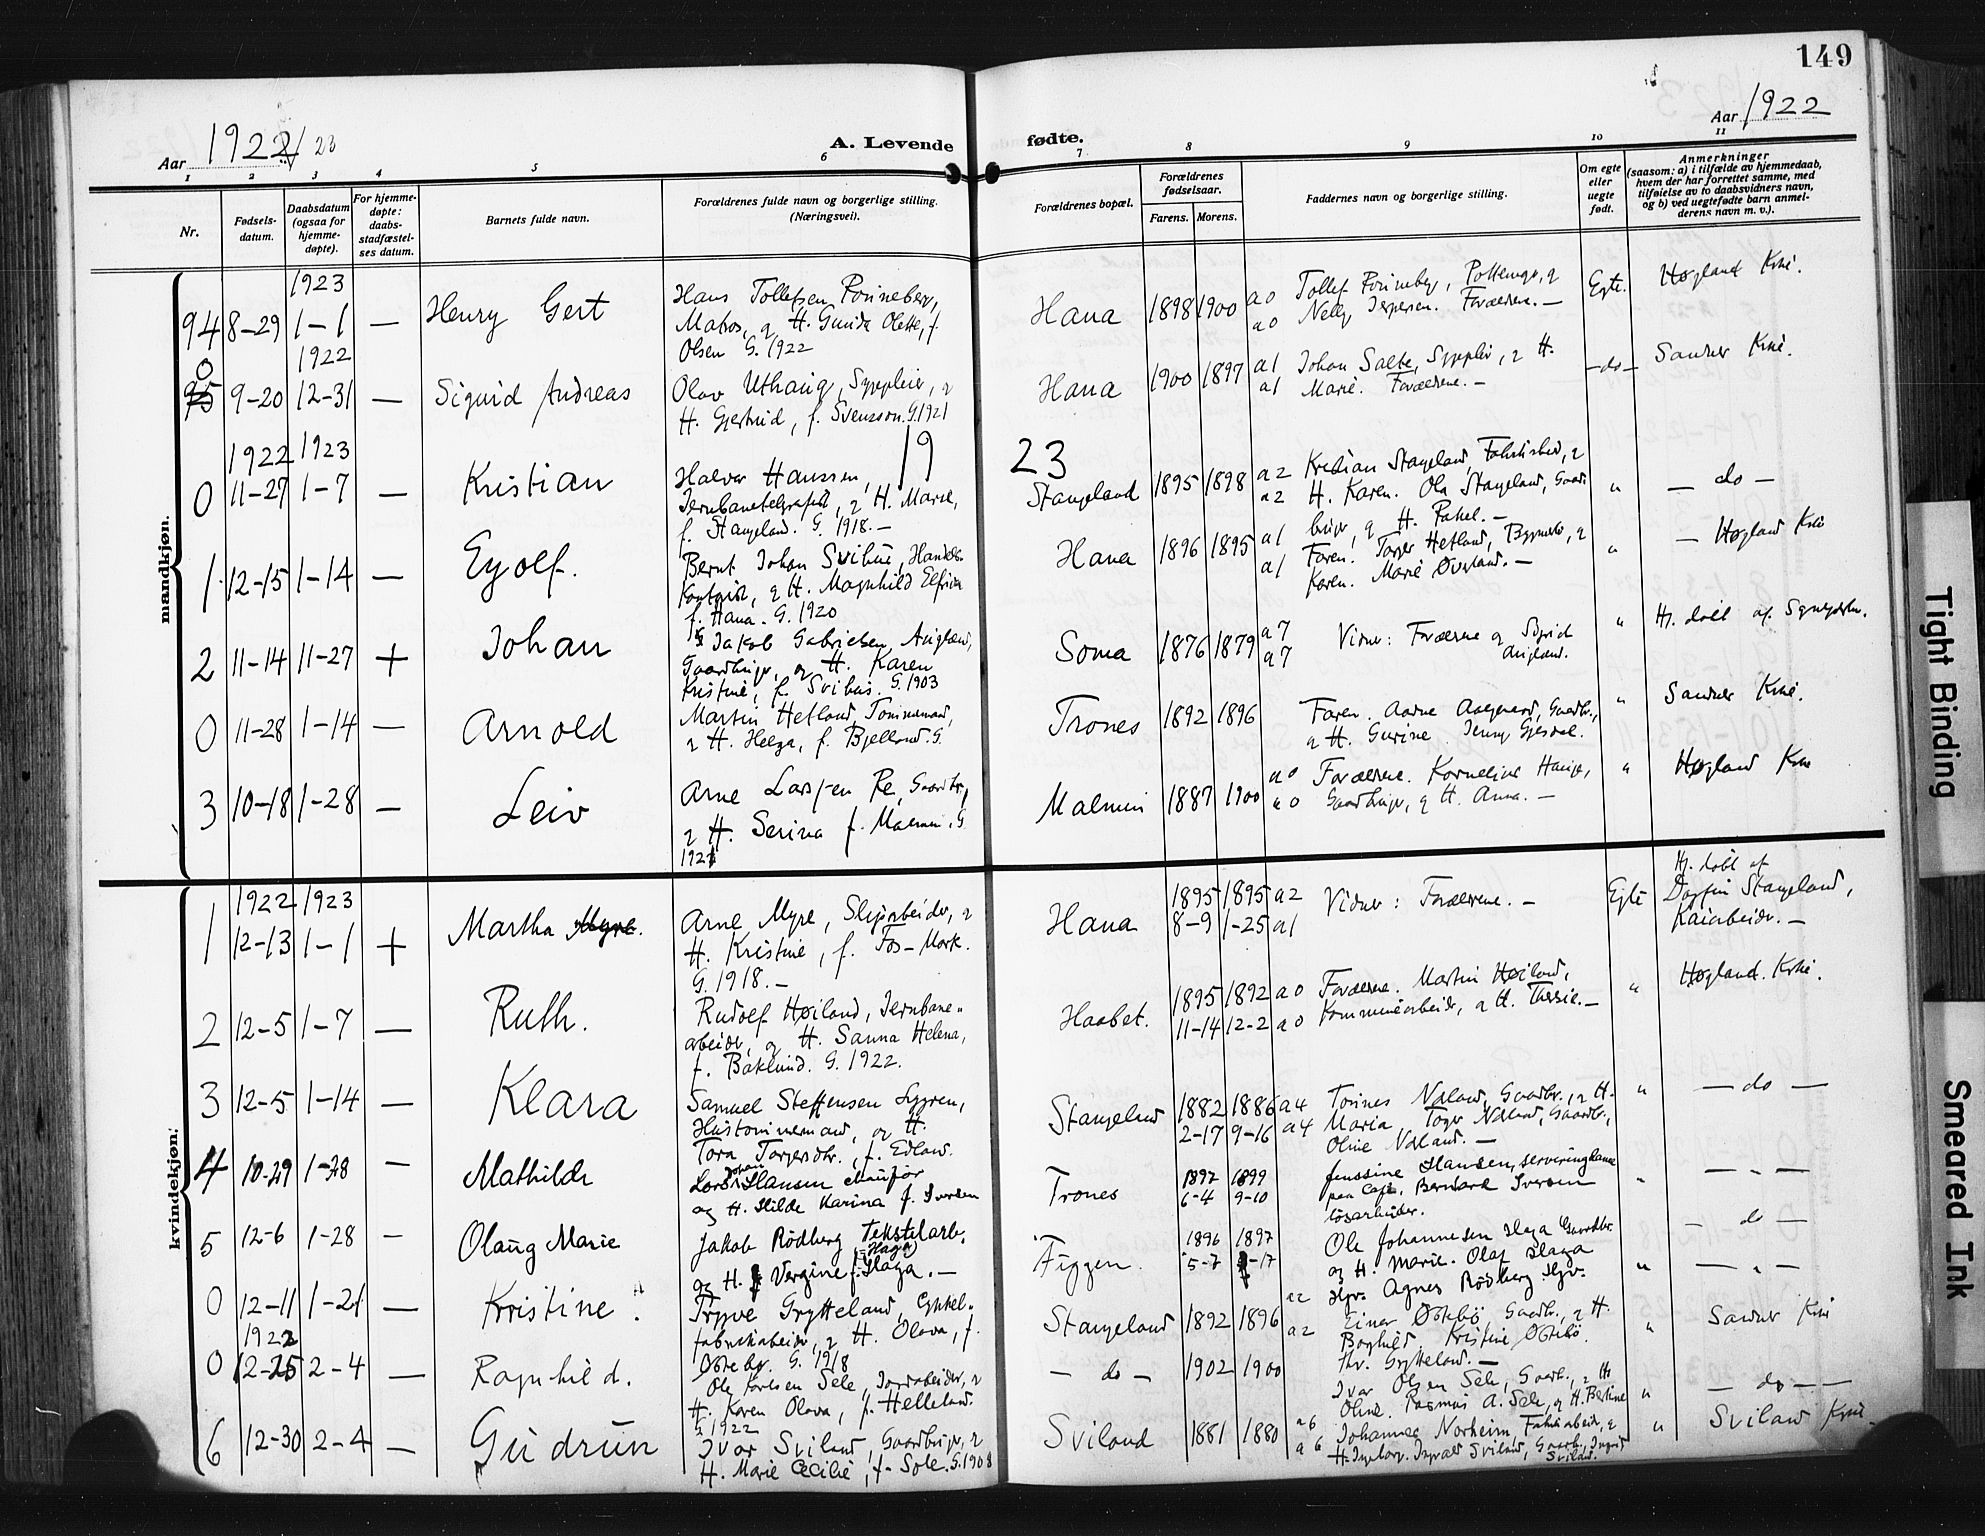 149
Aar 1922/23
A. Levende fødte.
Aar 1922
1 2 3 4 5 6 7 8 9 10 11
Nr.
Fødsels-datum.
Daabsdatum (ogsaa for hjemme-døpte).
For hjemme-døpte: daabs-stadfæstel-ses datum.
Barnets fulde navn.
Forældrenes fulde navn og borgerlige stilling.
(Næringsvei).
Forældrenes bopæl.
Forældrenes fødselsaar.
Farens. Morens.
Faddernes navn og borgerlige stilling.
Om egte eller uegte født.
Anmerkninger
(saasom: a) i tilfælde av hjemmedaab,
hvem der har forrettet samme, med
tilføielse av to daabsvidners navn,
og b) ved uegtefødte barn anmel-
derens navn m. v.).
mandkjøn.
1923
94 8-29 1-1 — Henry Gert
Hans Tollefsen
Matros, og H. Gunda Olette, f.
Olsen G. 1922
Hana 1898 1900 a0 a0
Nelly Forældrene. —
Egte. Høgland Krke.
0 1922
95 9-20 12-31 — Sigurd Andreas
Olav Uthaug,
H. Gjertrud, f. Svensson. G. 1921
Hana 1900 1897 a1 a1
Johan Salte, H.
Marie. Forældrene. —
— do — Sandnes Krke.
19 23
1922 1923
0 11-27 1-7 — Kristian
Halvor Hanssen,
Jernbanetelegrafist, H. Marie,
f. Stangeland. G. 1918. —
Stangeland 1895 1898 a2 a2
Kristian Stangeland,
H. Karen. Ola Stangeland, Gaard-
bruger, og H. Rakel. —
" — do —
1 12-15 1-14 — Eyolf.
Bernt Johan Svihus,
og H. Magnhild Elfrida
f. Hana. G. 1920
Hana 1896 1895 a1 a1
Faren. Torger Hetland,
Karen. Marie —
" — Høgland Krke
2 11-14 11-27 + Johan
Jakob Gabrielsen Auglend,
Gaardbruger, og H. Karen
Kristine, f. Svihus. G. 1903
Soma 1876 1879 a7 a7
Vidner: Forældrene og Sigrid
Auglend.
" Hj. døbt af
0 11-28 1-14 — Arnold
Martin Hetland, Tømmermand,
H. Helga, f. Bjelland. G.
Trones 1892 1896
Faren. Gaardbr.,
H. Gurine. Jenny Gjesdal.
" Sandnes Krke.
3 10-18 1-28 — Leiv
Arne Larssen Re, Gaardbr.,
H. Serina f. Malmin. G.
1921
Malmin 1887 1900 a0 a0
Forældrene. Kornelius Hauge,
Gaardbruger, og H. Anna. —
" Høgland Krke
kvindekjøn.
1922 1923
1 12-13 1-1 + Martha Myre.
Arne Myre, Sliperiarbeider,
H. Kristine, f. Fos-Mork.
G. 1918. —
Hana 1895 8-9 1895 1-25 a2 a1
Vidner: Forældrene. —
Egte
Hj. døbt af
Dagfin Stangeland,
Kaiarbeider. —
2 12-5 1-7 — Ruth.
Rudolf Høiland, Jernbane-
arbeider, og H. Sanna Helena,
f. Baklund. G. 1922.
Haabet. 1895 11-14 1892 12-2 a0 a0
Forældrene. Martin Høiland,
Kommunearbeider, H. Thersie. —
" Høgland. Krke.
3 12-5 1-14 — Klara
Samuel Steffensen Lygren,
Hustømmermand, og H.
Tora Torgersdtr., f. Edland.
Stangeland 1882 2-17 1886 9-16 a4 a4
Tønnes Nåland, Gaardbr., H.
Maria Togr Nåland, Gaardbr.,
Oline Nåland. —
" — do —
4 10-29 1-28 — Mathilde
Lars Johan Hansen chaufør
og H. Hilde Karina f. Iversen
Trones 1892 6-4 1899 9-10
Jenssine Hansen, serveringsdame
paa Café, Bernhard Iversen
løsarbeider.
" — " —
5 12-6 1-28 — Olaug Marie
Jakob Rødberg Tekstilarb.
og H. Vergine f. Haga. —
(Haga)
Figgen. 1896 5-7 1897 -17
Ole Johannesen Haga Gaardbr.
og H. Marie. Olaf Haga
Agnes Rødberg
— do —
" — " —
0 12-11 1-21 — Kristine.
Trygve Grytteland, Cykkel-
fabrikarbeider, H. Olava, f.
G. 1918
Stangeland 1892 1896 a2 a2
Einar Østebø Gaardbr., H.
Borghild. Kristine Østebø.
Thv. Grytteland. —
" Sandnes Krke
1922
0 12-25 2-4 — Ragnhild.
Ole Karlsen Sele, Jordarbeider,
H. Karen Olava, f. Helleland.
G. 1922
— do — 1902 1900
Ivar Olsen Sele, Gaardbr., H.
Oline. Rasmus A. Sele, H. Bertine
" — do —
6 12-30 2-4 — Gudrun
Ivar Sviland, Gaardbruger,
H. Marie Cecilie, f. Sole. G. 1908
Sviland 1881 1880 a6 a6
Johannes Norheim, Fabrikarbeider,
H. Ingeborg. Ingvald Sviland, Gaardbr., Ingrid
Sviland.
" Sviland Krke.
Tight Binding
Smeared Ink